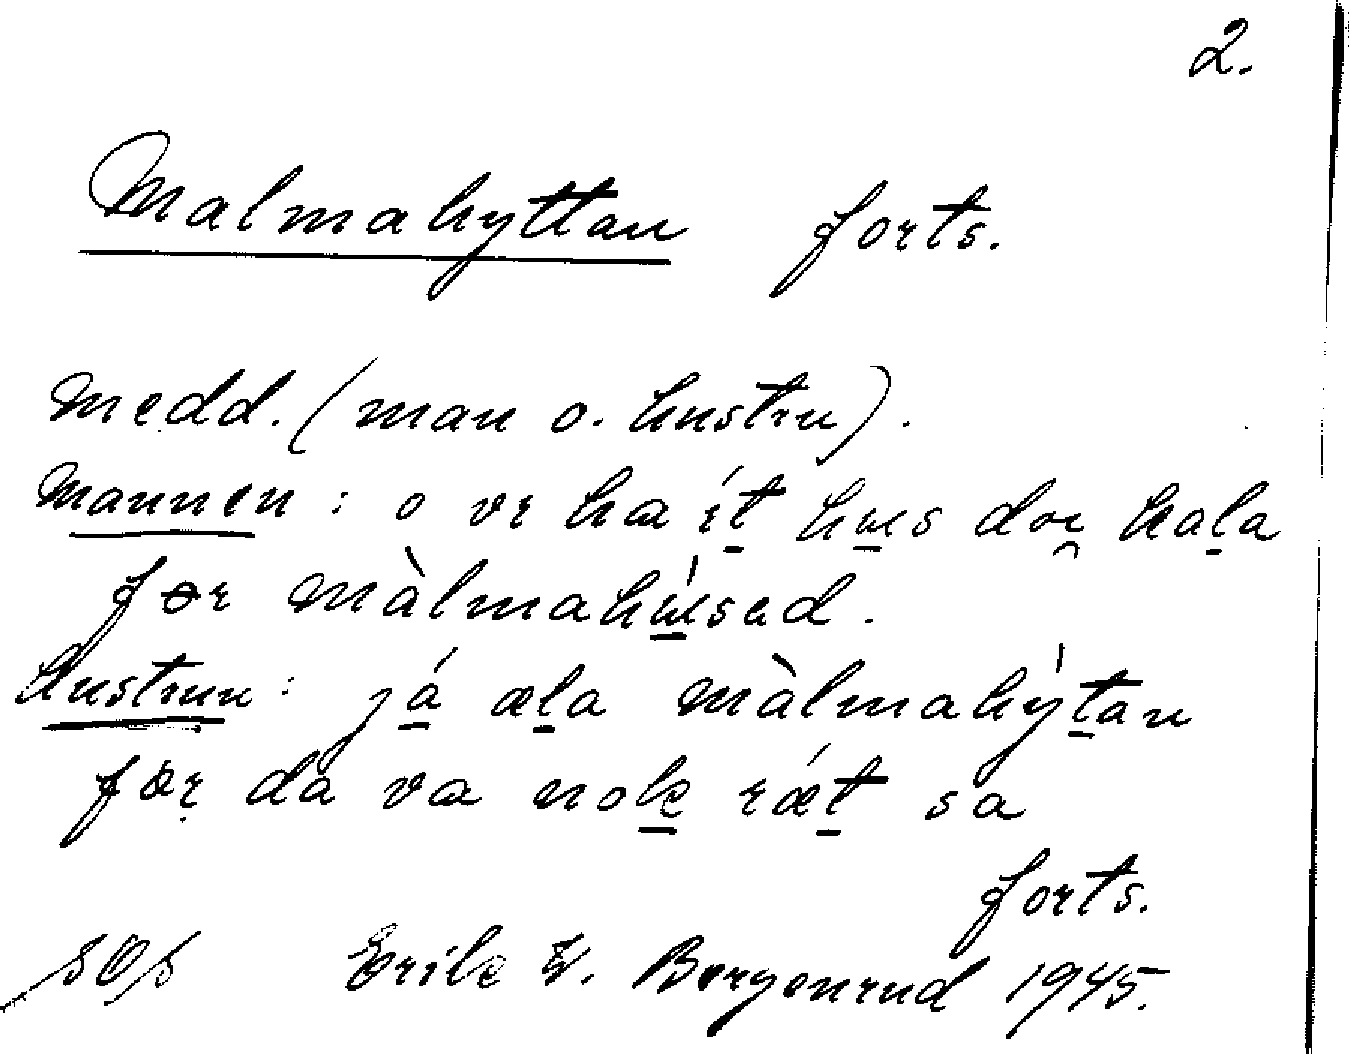 2.
Malmahyttan forts.
Medd. (man o. hustru).
Mannen: o vr ha ít hus doe kala
før màlmahúsed.
Hustrun: já æla màlmahýtan
før da va nok rǽt sa
forts.
Erik W. Bergenrud 1945.